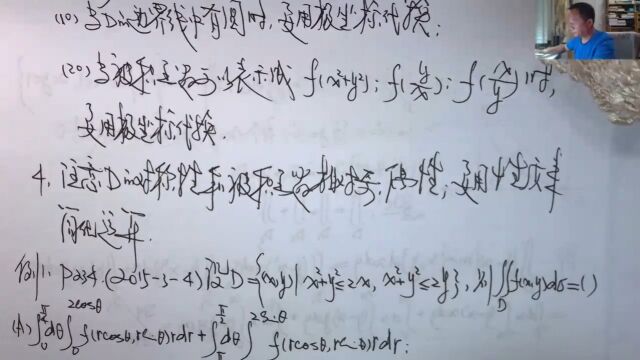 (1°) 当D的边界线中有圆时,要用极坐标代换;
(2°) 当被积函数可以表示成 f(x²+y²); f(y/x); f(x/y)时,
要用极坐标代换.
4. 注意D的对称性和被积函数的奇偶性,要用性质来
简化运算.
例1. P234.(2015-3-4)设D={(x,y)|x²+y²≤2x, x²+y²≤2y},则∬_D f(x,y)dσ=( )
(A) ∫_0^{π/2}dθ∫_0^{2cosθ} f(rcosθ,rsinθ)rdr+∫^{π/2}dθ∫_0^{2sinθ} f(rcosθ,rsinθ)rdr;